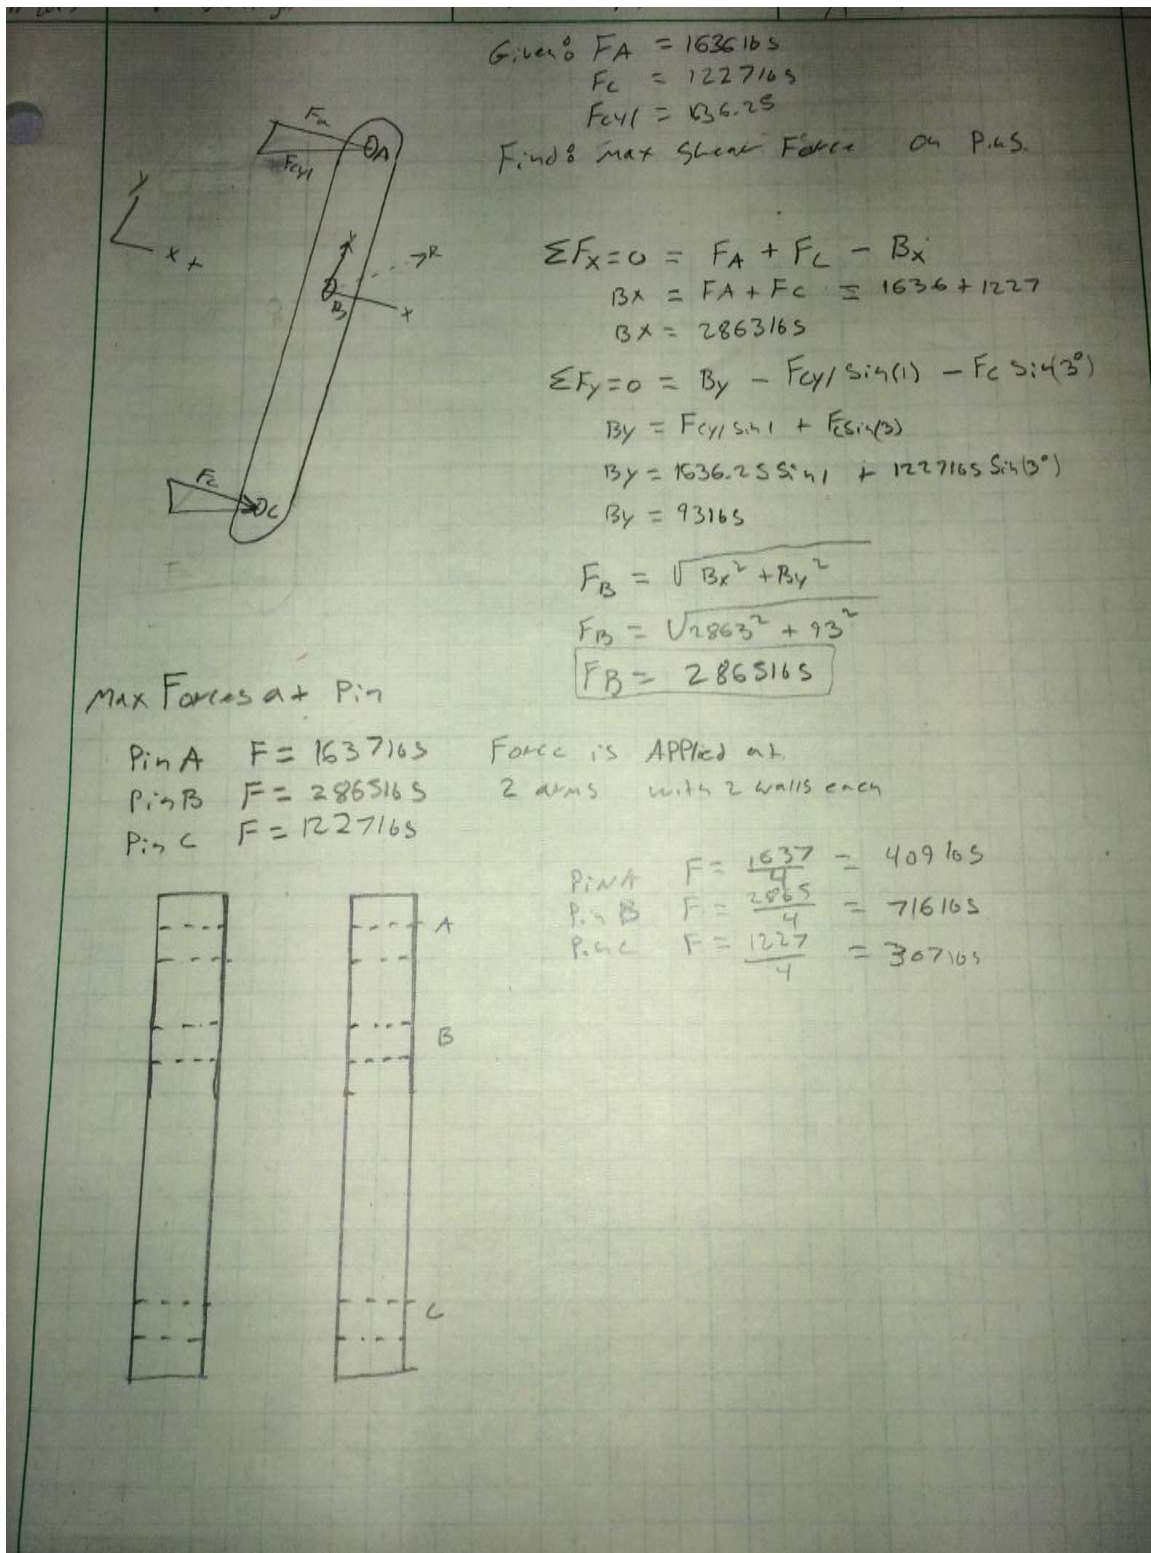 Given: FA = 1636 lbs
Fc = 1227 lbs
Fcyl = 1636.25
Find: Max Shear Force on Pins.
Fa
A
Fcyl
y
x +
y
R
B
x
ΣFx=0 = FA + Fc - Bx
Bx = FA + Fc = 1636 + 1227
Bx = 2863 lbs
ΣFy=0 = By - Fcyl Sin(1) - Fc Sin(3°)
By = Fcyl Sin 1 + Fc Sin(3)
By = 1636.25 Sin 1 + 1227 lbs Sin(3°)
By = 93 lbs
Fc
C
FB = √Bx² + By²
FB = √2863² + 93²
FB = 2865 lbs
Max Forces at Pin
Pin A F = 1637 lbs
Pin B F = 2865 lbs
Pin C F = 1227 lbs
Force is Applied at
2 arms with 2 walls each
Pin A F = 1637/4 = 409 lbs
Pin B F = 2865/4 = 716 lbs
Pin C F = 1227/4 = 307 lbs
A
B
C